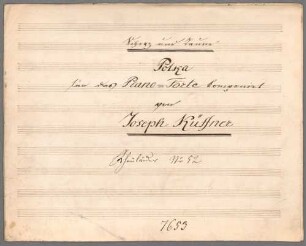 Scherz und Laune
Polka
für das Piano-Forte componirt
von
Joseph Küffner
No 52
7653